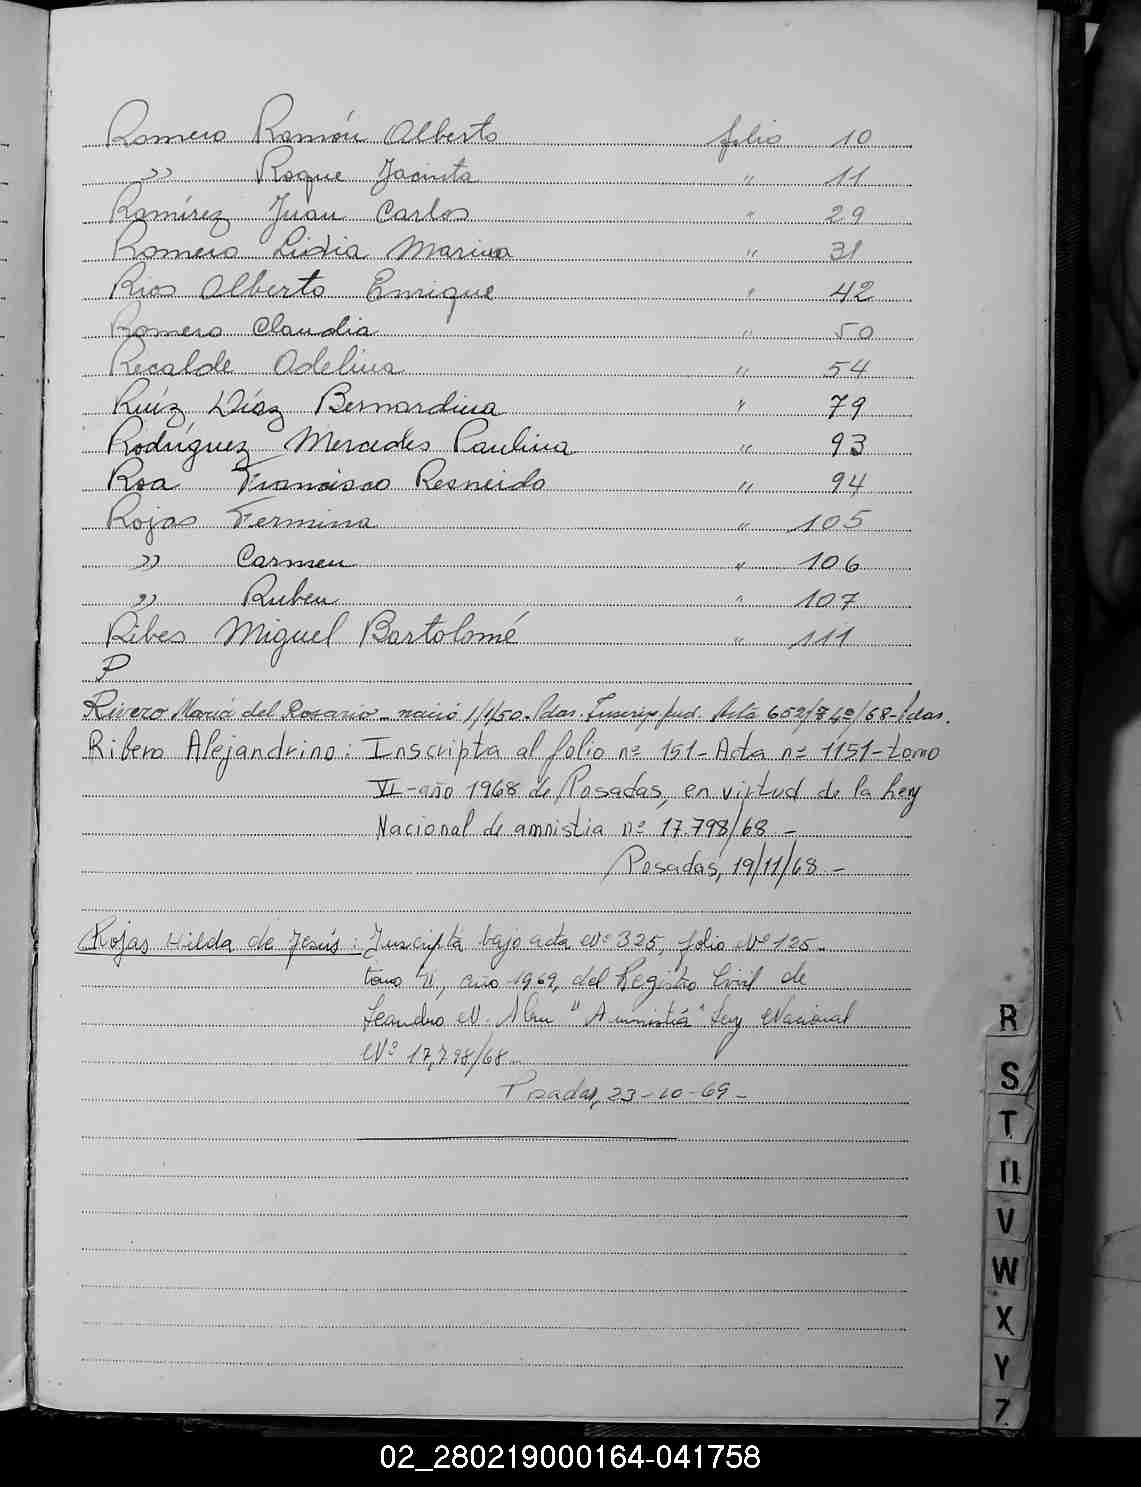 Romero Ramón Alberto folio 10
" Roque Jacinta " 11
Ramírez Juan Carlos " 29
Romero Lidia Marina " 31
Rios Alberto Enrique " 42
Romero Claudia " 50
Recalde Adelina " 54
Ruíz Díaz Bernardina " 79
Rodríguez Mercedes Paulina " 93
Roa Francisco Resneido " 94
Rojas Fermina " 105
" Carmen " 106
" Ruben " 107
Ribes Miguel Bartolomé " 111
P
Rivero María del Rosario - nació 1/1/50. Pdas. Inscrip. Jud. Acta 652/ /68 - Pdas.
Ribero Alejandrino: Inscripta al folio nº 151 - Acta nº 1151 - tomo
VI - año 1968 de Posadas, en virtud de la Ley
Nacional de amnistia nº 17.798/68 -
Posadas, 19/11/68 -
Rojas Hilda de Jesús: Inscripta bajo acta Nº 325, folio Nº 125 -
tomo II, año 1969, del Registro Civil de
Leandro N. Alem "Amnistía" Ley Nacional
Nº 17,798/68
Posadas, 23-10-69 -
R
S
T
U
V
W
X
Y
Z
02_280219000164-041758